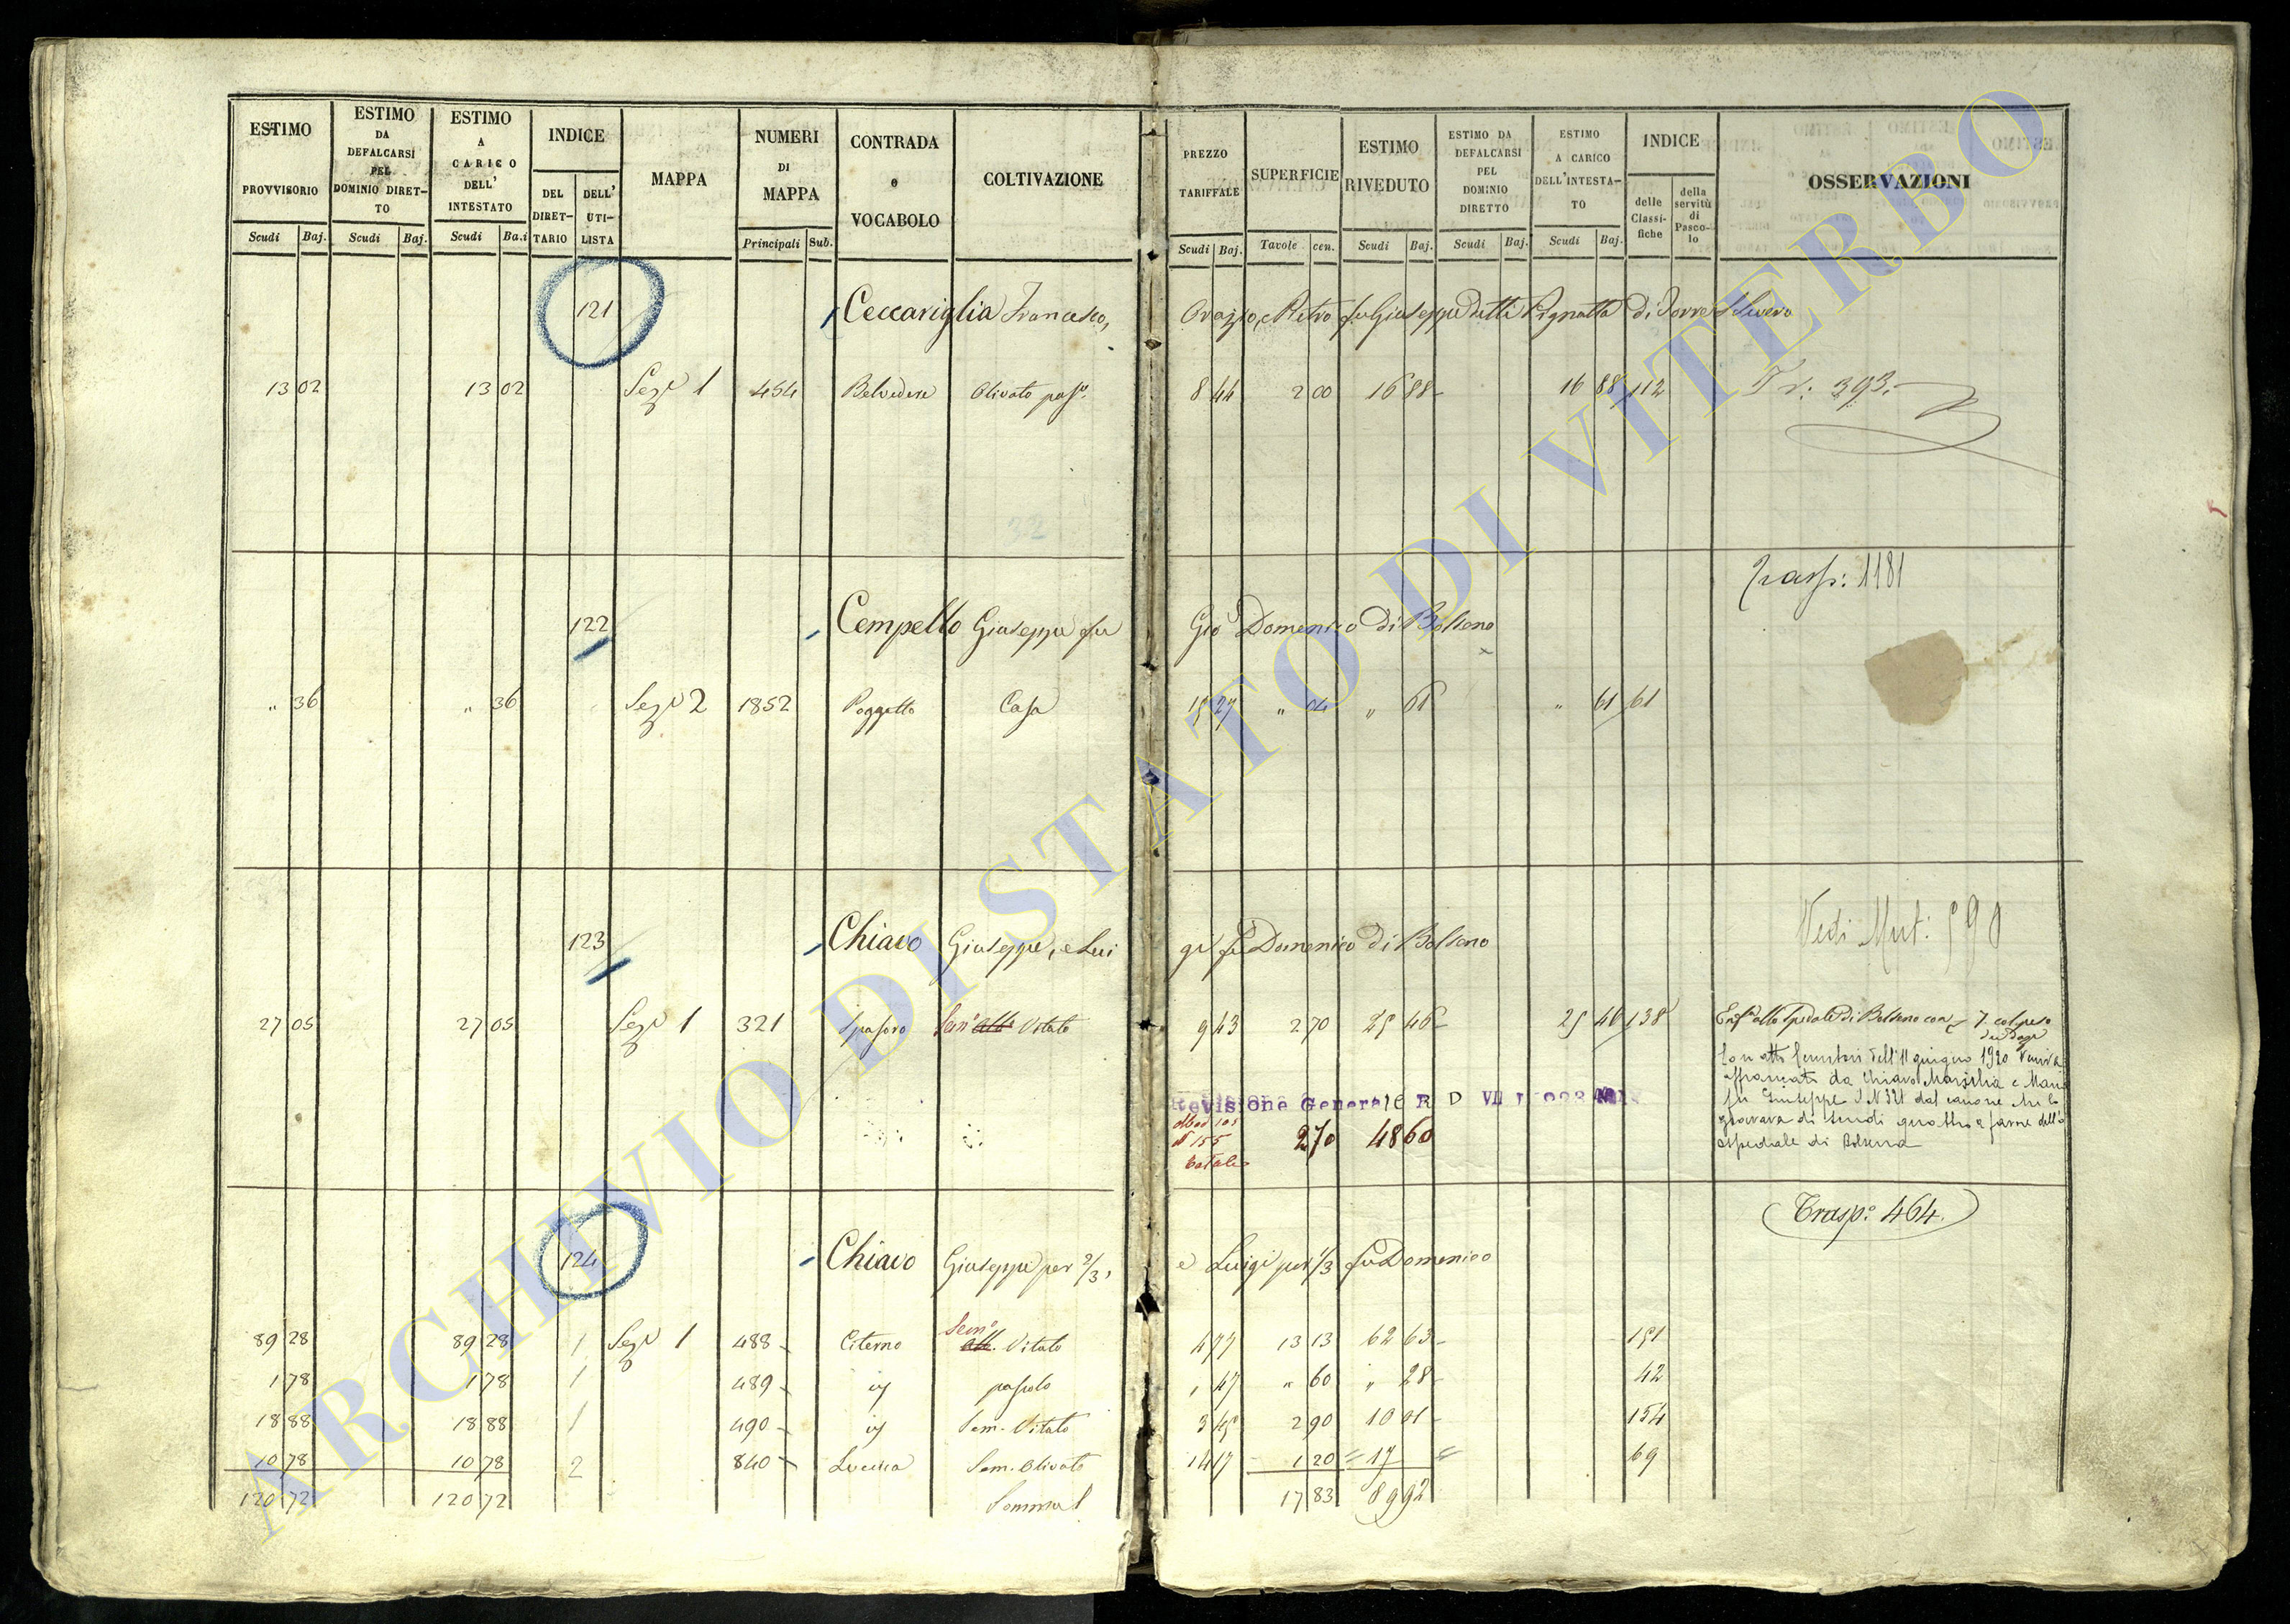 ESTIMO PROVVISORIO Scudi Baj.
ESTIMO DA DEFALCARSI PEL DOMINIO DIRET-TO Scudi Baj.
ESTIMO A CARICO DELL' INTESTATO Scudi Ba.i
INDICE DEL DIRET-TARIO DELL' UTI-LISTA
MAPPA
NUMERI DI MAPPA Principali Sub.
CONTRADA e VOCABOLO
COLTIVAZIONE
PREZZO TARIFFALE Scudi Baj.
SUPERFICIE Tavole cen.
ESTIMO RIVEDUTO Scudi Baj.
ESTIMO DA DEFALCARSI PEL DOMINIO DIRETTO Scudi Baj.
ESTIMO A CARICO DELL'INTESTA-TO Scudi Baj.
INDICE delle Classi-fiche della servitù di Pasco-lo
OSSERVAZIONI
121 Ceccariglia Francesco, Orazio, e Pietro fu Giuseppe detti Pignatta di Torre
13 02 13 02 Sez.e 1 454 Belvedere Olivato pas.o 8 44 2 00 16 88 16 88 112 Tr: 393.
32
Trasp: 1181
122 Cempello Giuseppe fu Gio Domenico di Bolseno
" 36 " 36 Sez.e 2 1852 Poggetto Casa 15 27 " 04 " 61 " 61 61
Vedi Mut: 590
123 Chiavo Giuseppe, e Lui gi fu Domenico di Bolseno
27 05 27 05 Sez.e 1 321 Spasoro Sem.o Vitato 9 43 2 70 25 46 25 46 138 Enf.a allo Spedale di Bolseno con
Con atto dell'11 giugno 1920 venne
affrancato da Chiavo Marsilia e Maria
fu Giuseppe il N 321 dal canone che lo
gravava di scudi quattro a favore dell'o
ospedale di Bolsena
Revisione Generale R D VII
N 155 270 48 60
Catale
Trasp.o 464.
124 Chiavo Giuseppe per 2/3, e Luigi per 1/3 fu Domenico
89 28 89 28 1 Sez.e 1 488 Citerno Sem.o Vitato 4 77 13 13 62 63 151
1 78 1 78 1 489 " pascolo " 47 " 60 " 28 42
18 88 18 88 1 490 " Sem. Vitato 3 45 2 90 10 01 154
10 78 10 78 2 840 Sem. Olivato 14 17 1 20 17 69
120 72 120 72 Somma 17 83 89 92
ARCHIVIO DI STATO DI VITERBO